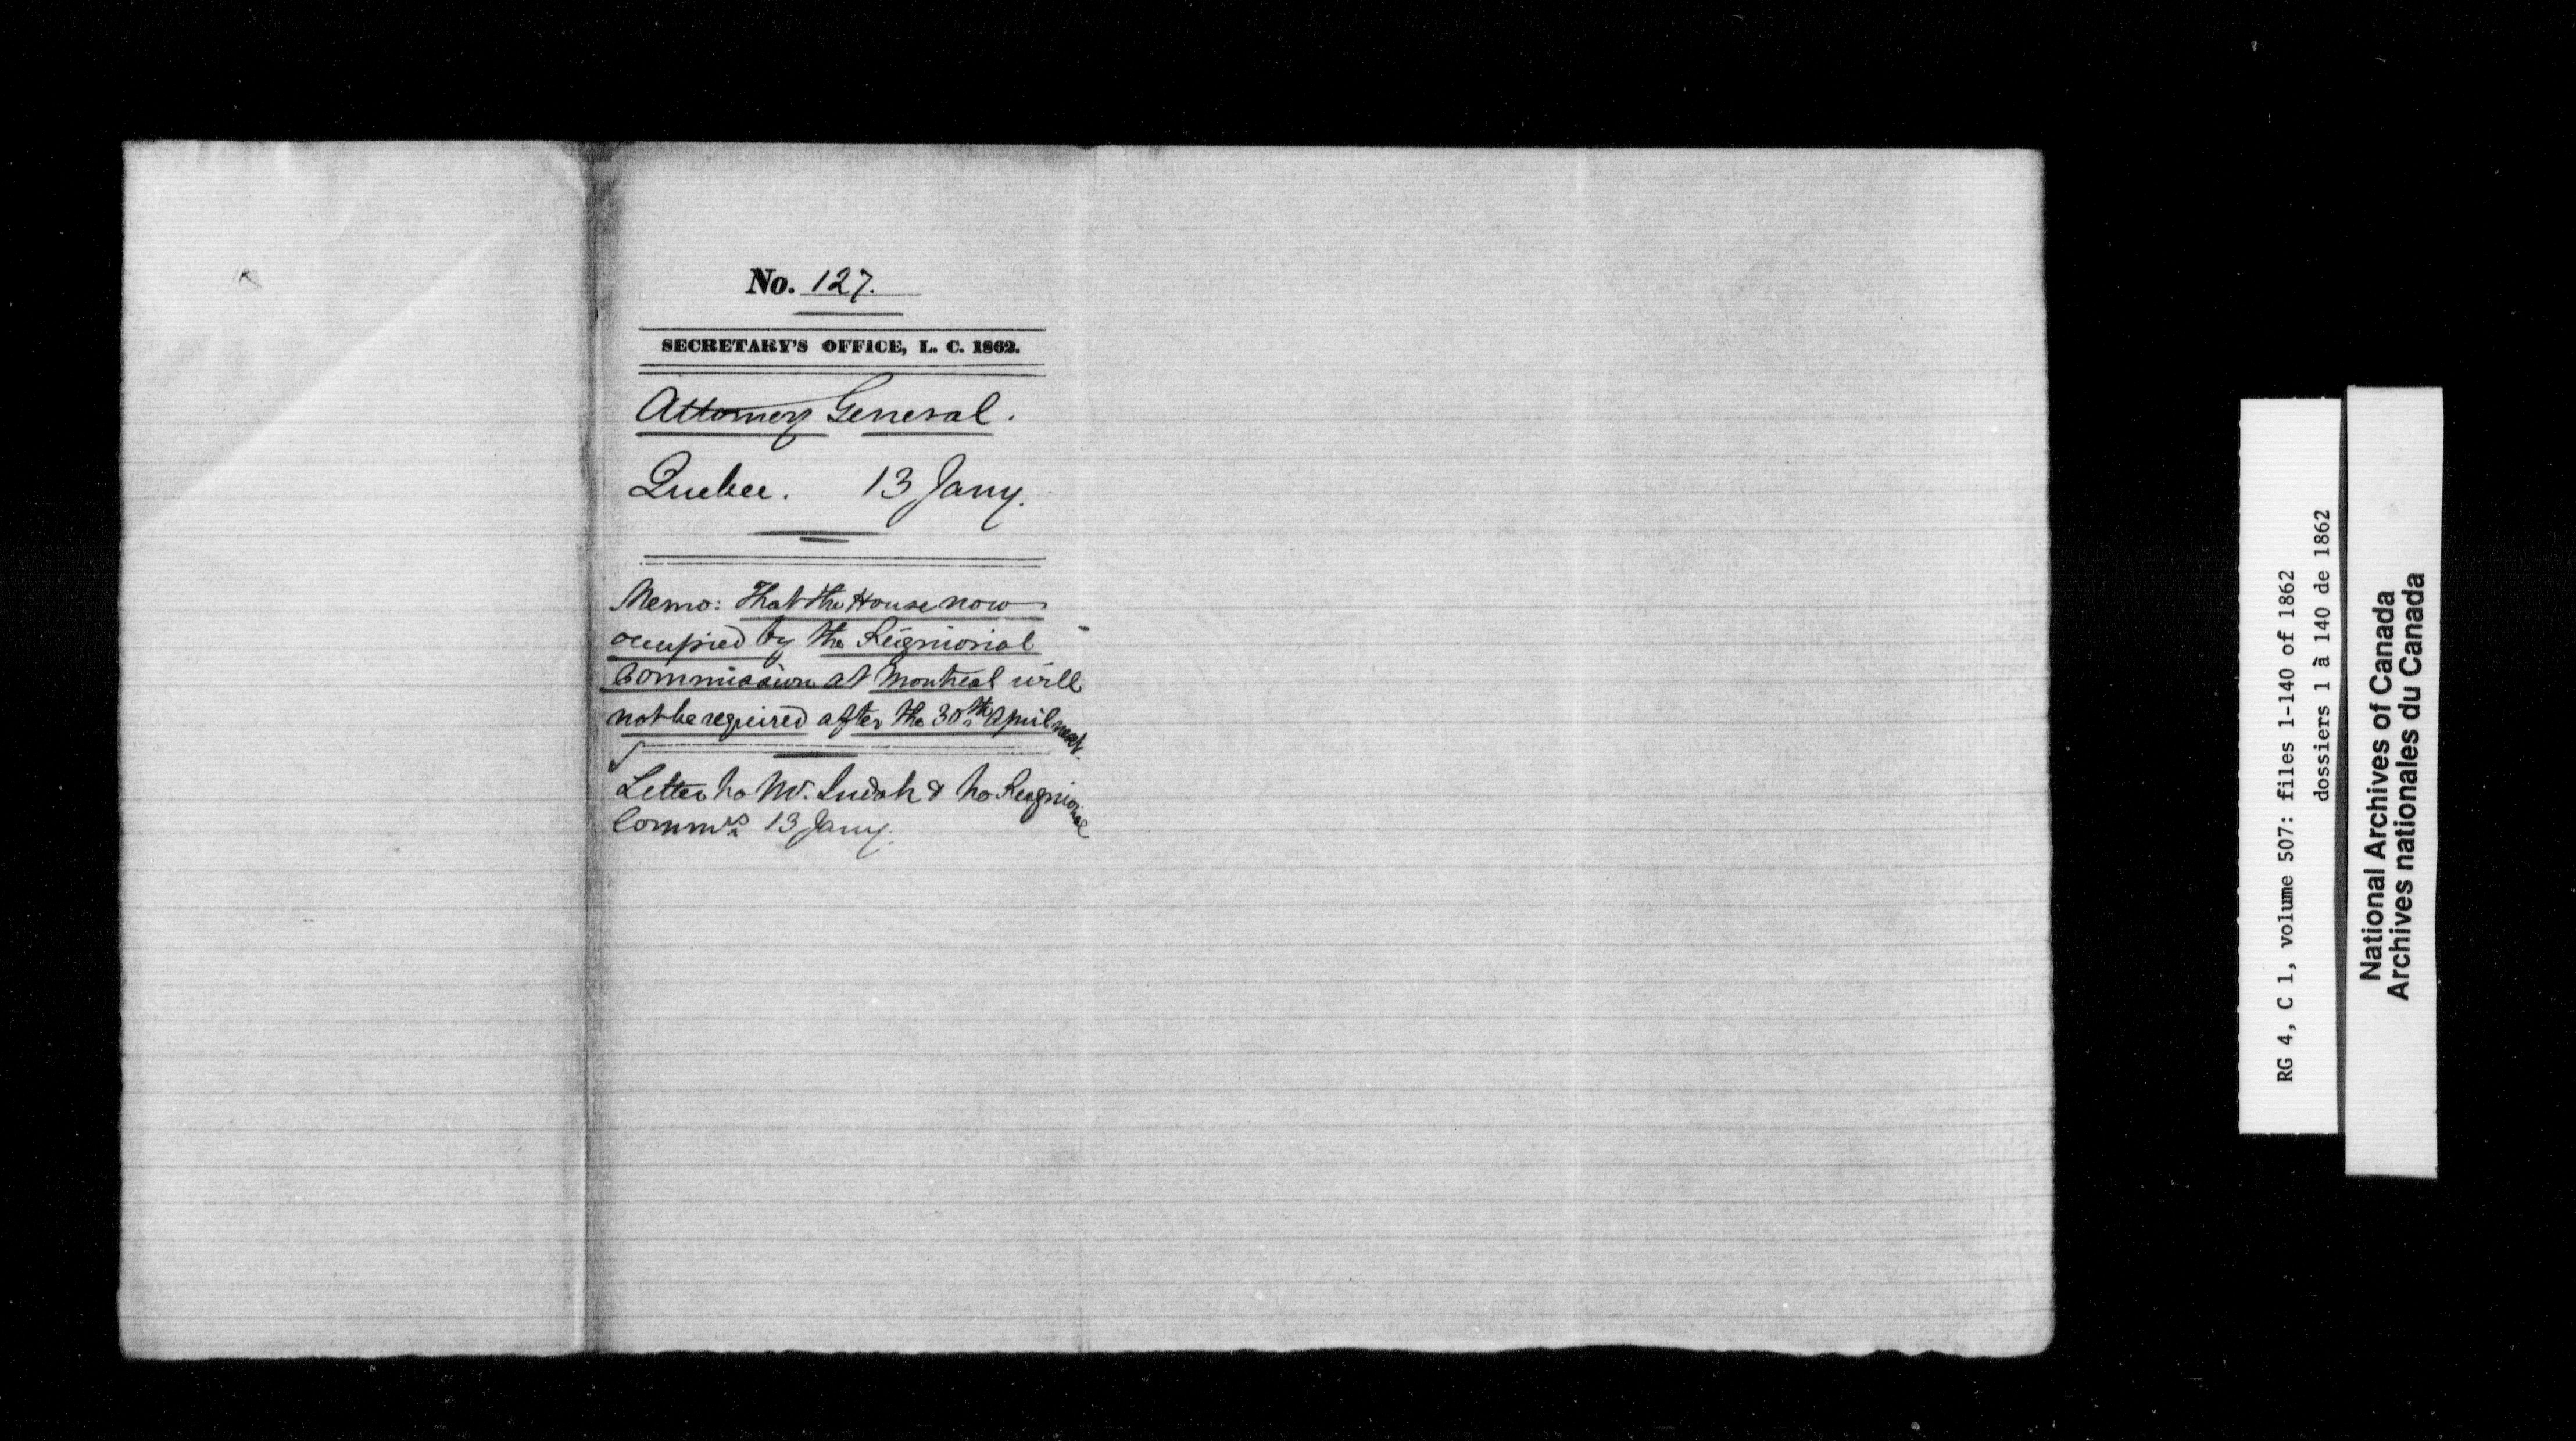 No. 127.
SECRETARY'S OFFICE, L. C. 1862.
Attorney General.
Quebec. 13 Jany.
Memo: That the House now
occupied by the Seigniorial
Commission at Montreal will
not be required after the 30th April next.
Letter to Mr. Judah & to Seigniorial
Commrs 13 Jany.
RG 4, C 1, volume 507: files 1-140 of 1862
dossiers 1 à 140 de 1862
National Archives of Canada
Archives nationales du Canada